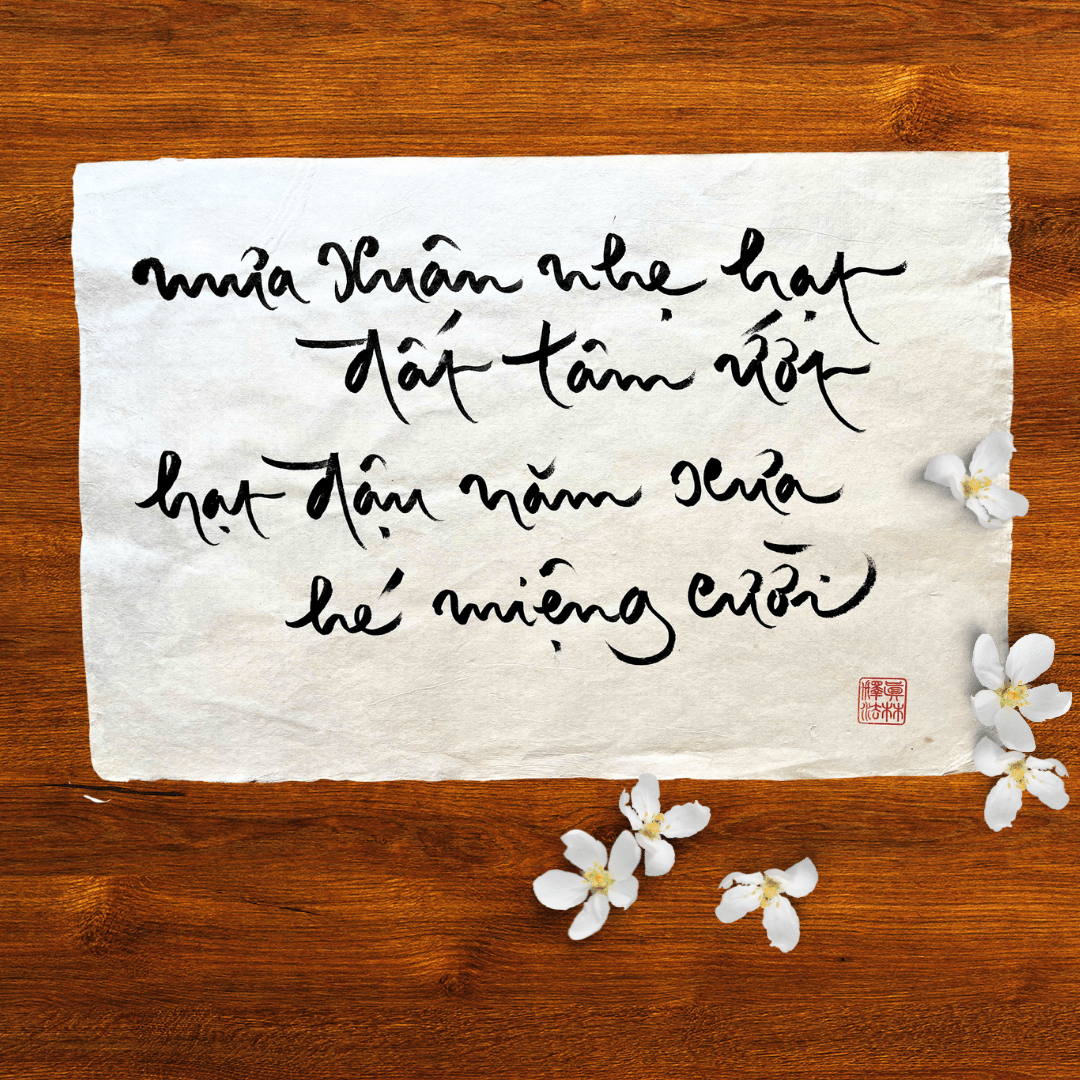 mưa xuân nhẹ hạt
đất tâm ướt
hạt đậu năm xưa
hé miệng cười
釋眞
法林